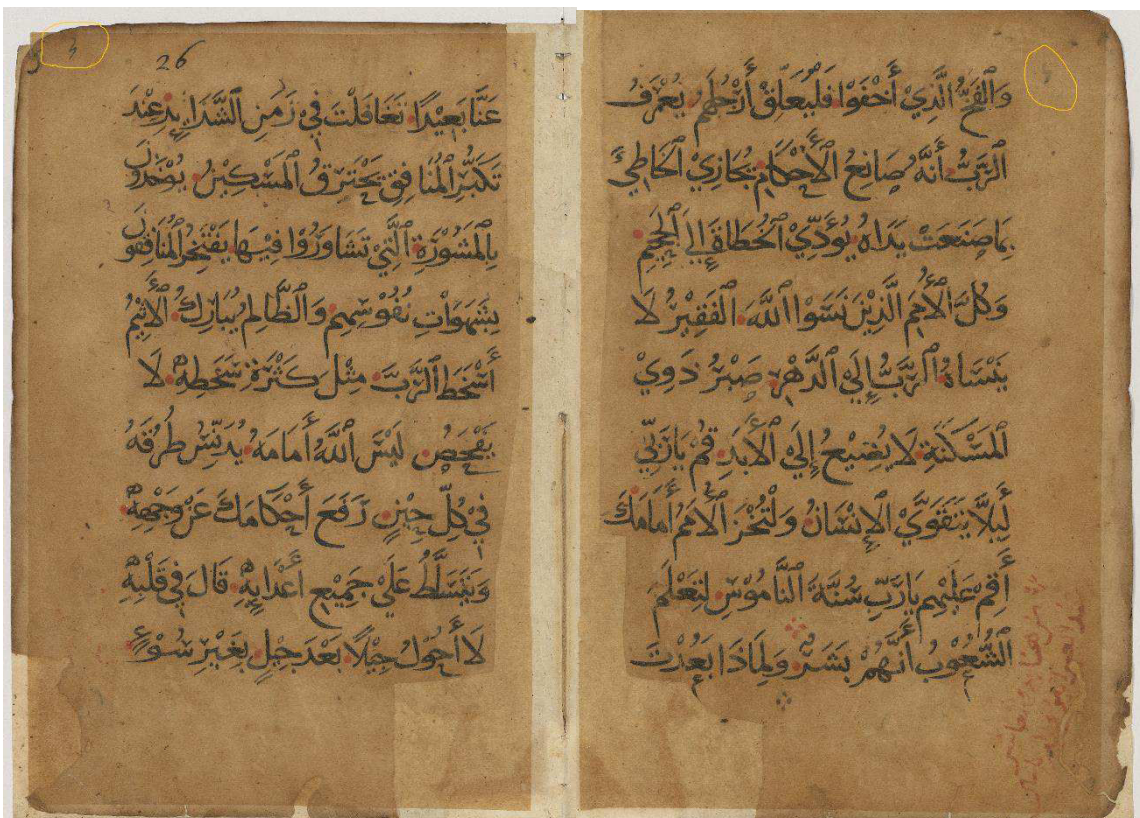 وَالْفَخُّ الَّذِيْ أَخْفَوْا فَلْيُعَلِقْ أَرْجُلَهُمْ يُعْرَفُ
الرَّبُّ أَنَّهُ صَانِعُ الْأَحْكَامِ يُجَازِيْ الْخَاطِيَّ
بِمَا صَنَعَتْ يَدَاهُ يُؤَدِّيْ الْخُطَاةَ إِلَى الْجَحِيْمِ
وَكُلَّ الْأُمَمِ الَّذِيْنَ نَسَوْا اللَّهَ الْفَقِيْرُ لَا
يَنْسَاهُ الرَّبُّ إِلَى الدَّهْرِ صَبْرُ ذَوِيْ
الْمَسْكَنَةِ لَا يُضِيْعُ إِلَى الْأَبَدِ قُمْ يَا رَبِّيْ
لِيَلَّا يَتَقَوَّيْ الْإِنْسَانُ وَلْتُخْزَ الْأُمَمُ أَمَامَكَ
أَقِمْ عَلَيْهِمْ يَا رَبِّ سُنَّةَ النَّامُوْسِ لِتَعْلَمَ
الشُّعُوْبُ أَنَّهُمْ بَشَرٌ وَلِمَاذَا بَعُدْتَ
26
عَنَّا بَعِيْدًا تَغَافَلْتَ فِيْ زَمَنِ الشَّدَايِدِ عِنْدَ
تَكَبُّرِ الْمُنَافِقِ يَحْتَرِقُ الْمَسْكِيْنُ يُصْدَرُوْنَ
بِالْمَشُوْرَةِ الَّتِيْ تَشَاوَرُوْا فِيْهَا يَفْتَخِرُ الْمُنَافِقُوْنَ
بِشَهَوَاتِ نُفُوْسِهِمْ وَالظَّالِمُ يُبَارِكُ الْأَثِيْمُ
أَسْخَطَ الرَّبَّ مِثْلَ كَثْرَةِ سَخَطِهِ لَا
يَفْحَصُ لَيْسَ اللَّهُ أَمَامَهُ يُدَنِّسُ طُرُقَهُ
فِيْ كُلِّ حِيْنٍ رَفَعَ أَحْكَامَكَ عَنْ وَجْهِهِ
وَيَتَسَلَّطُ عَلَى جَمِيْعِ أَعْدَايِهِ قَالَ فِيْ قَلْبِهِ
لَا أَحُوْلُ جِيْلًا بَعْدَ جِيْلٍ بِغَيْرِ سُوْءٍ